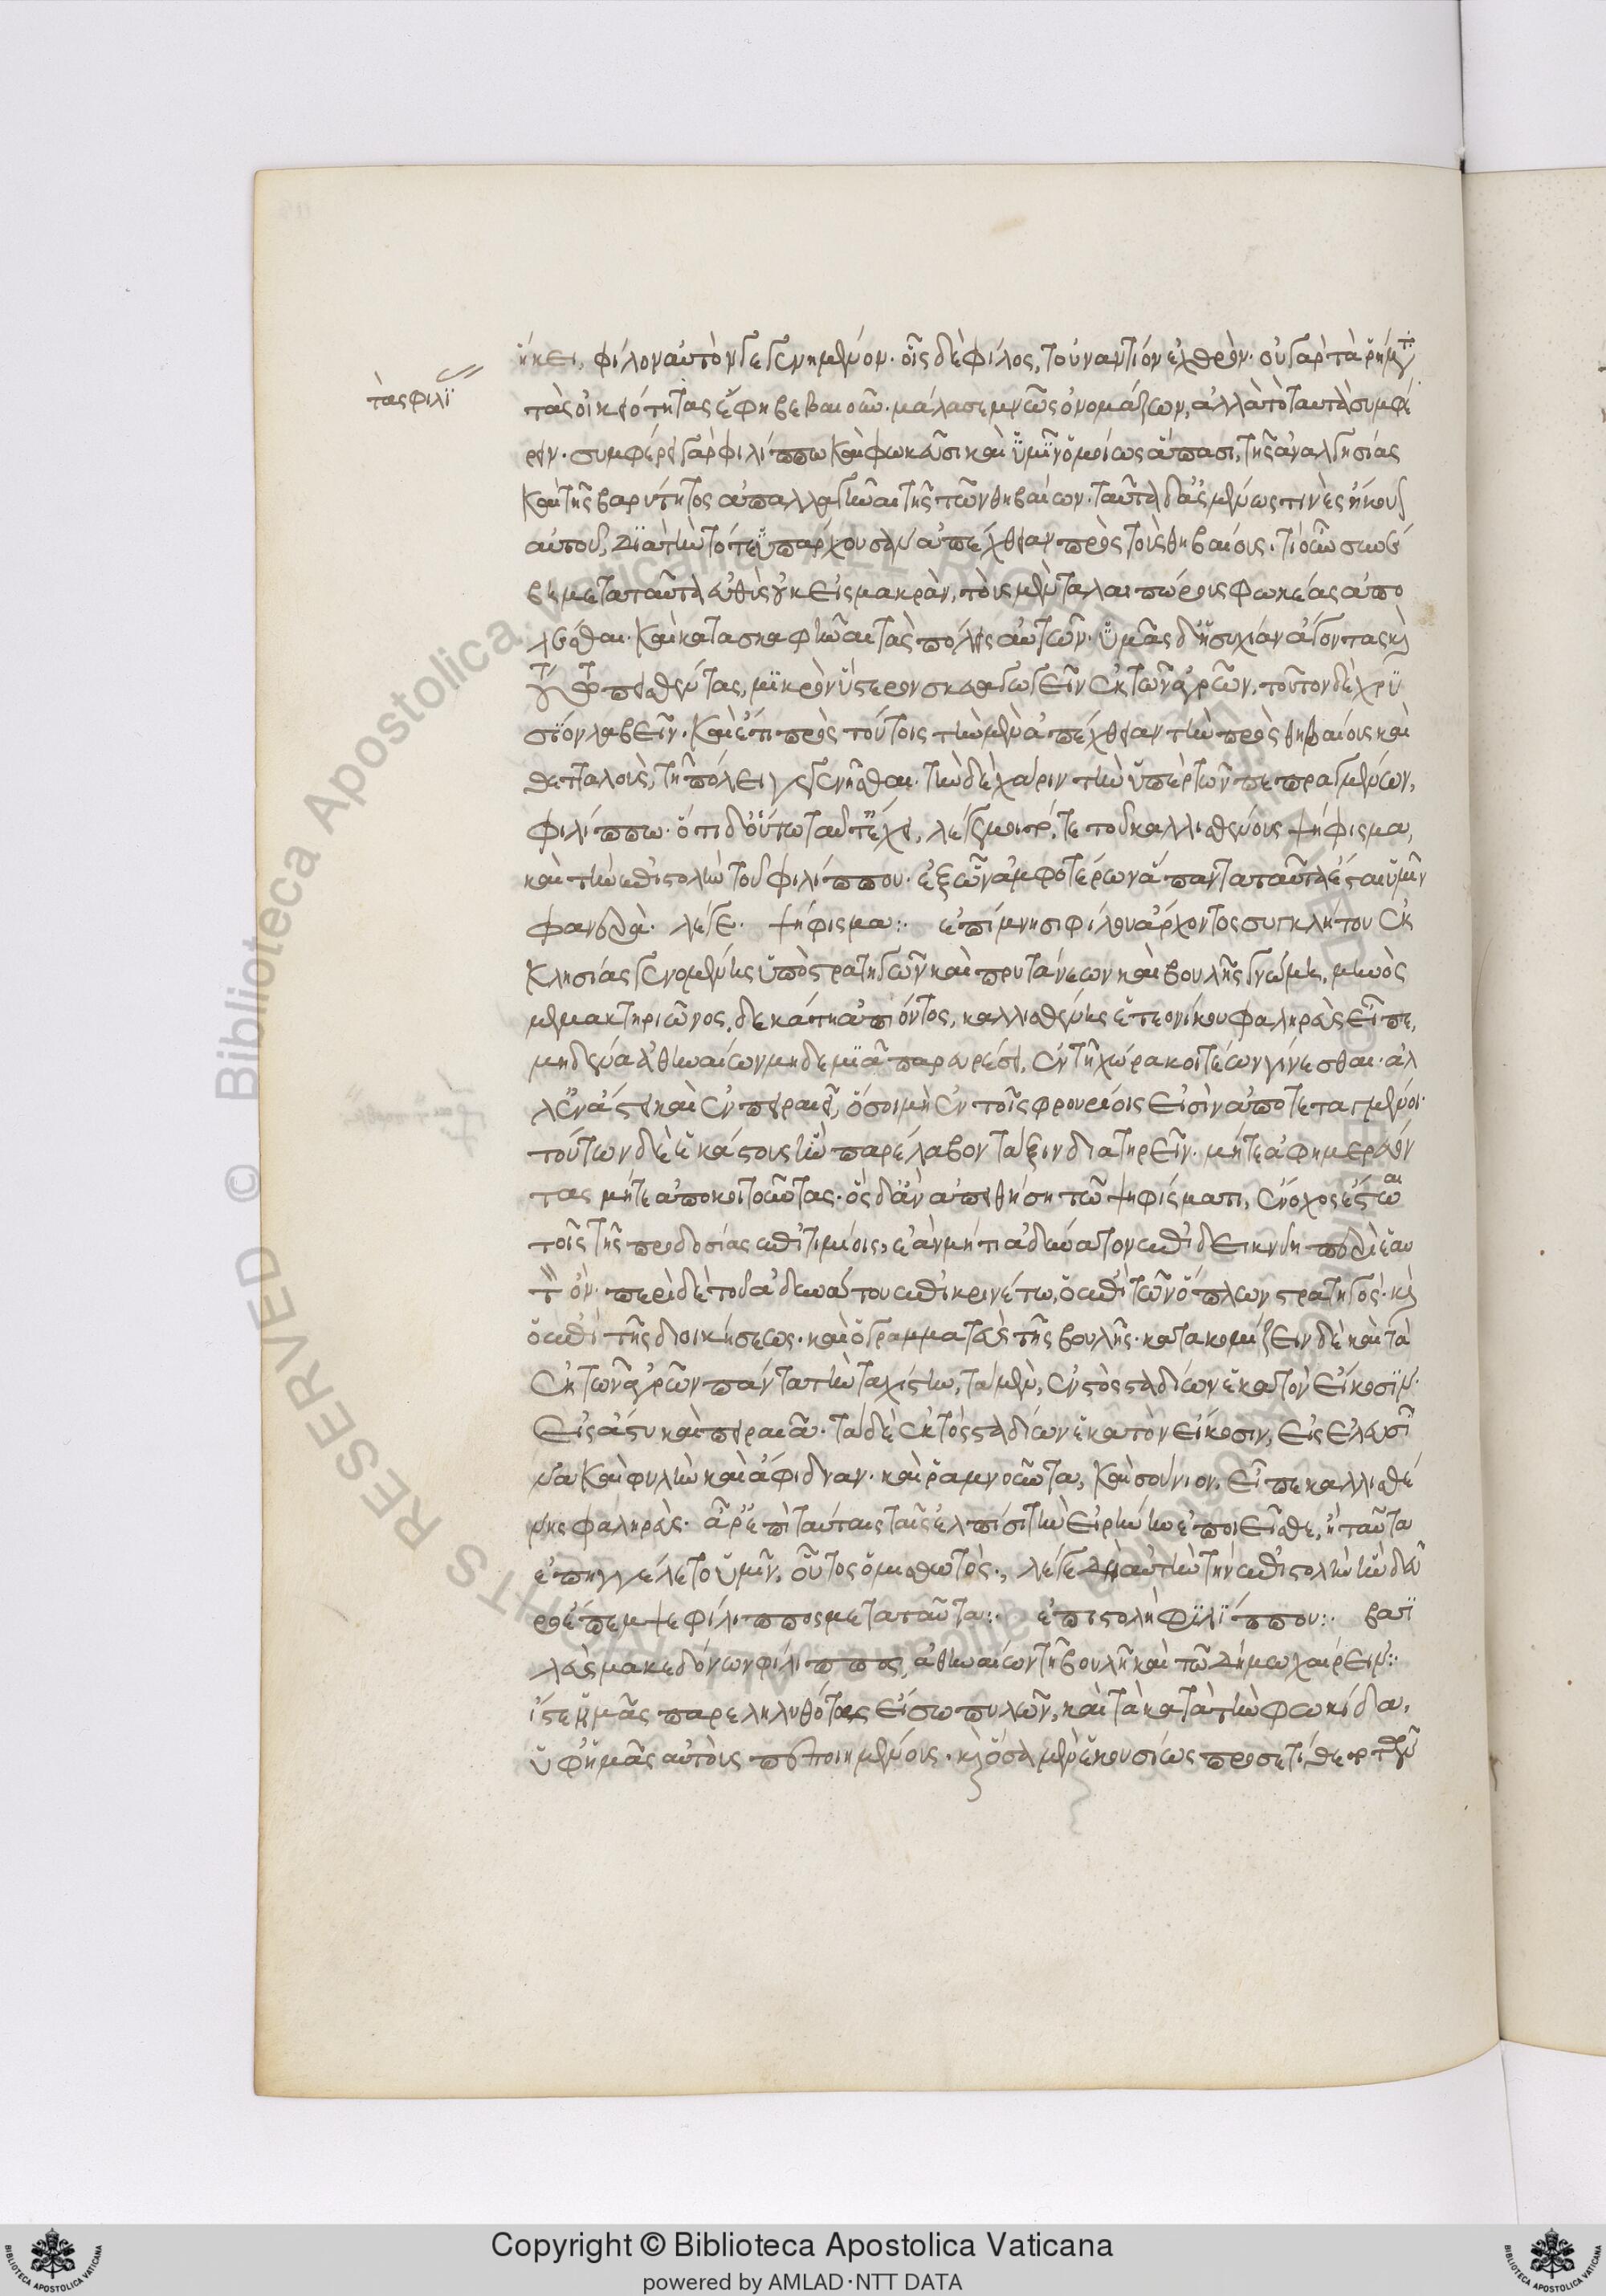 ἥκει, φίλον αὐτὸν γεγενημένον· οἷς δὲ φίλος, τοὐναντίον ἐχθρόν· οὐ γὰρ τὰ ῥήματα
τὰς φιλϊ
τὰς οἰκειότητας ἔφη βεβαιοῦν· μάλα σεμνῶς ὀνομάζων, ἀλλὰ τὸ ταυτὰ συμφέ
ρειν· συμφέρει γὰρ φιλίππω καὶ φωκεῦσι καὶ ὑμῖν ὁμοίως ἅπασι, τῆς ἀναλγησίας
καὶ τῆς βαρύτητος ἀπαλλαγῆναι τῆς τῶν θηβαίων· ταῦτα δ' ἀσμένως τινὲς ἤκουον
αὐτοῦ, διὰ τὴν τόθ' ὑπάρχουσαν ἀπέχθειαν πρὸς τοὺς θηβαίους· τί οὖν συνέ
βη μετὰ ταῦτα εὐθὺς οὐκ εἰς μακρὰν, τοὺς μὲν ταλαιπώρους φωκέας ἀπο
λέσθαι· καὶ κατασκαφῆναι τὰς πόλεις αὐτῶν· ὑμᾶς δ' ἡσυχίαν ἄγοντας καὶ
τούτω πεισθέντας, μικρὸν ὕστερον σκευαγωγεῖν ἐκ τῶν ἀγρῶν, τοῦτον δὲ χρϋ
σΐον λαβεῖν· καὶ ἔτι πρὸς τούτοις τὴν μὲν ἀπέχθειαν τὴν πρὸς θηβαίους καὶ
θετταλοὺς, τῆ πόλει γεγενῆσθαι· τὴν δὲ χάριν τὴν ὑπὲρ τῶν πεπραγμένων,
φιλίππω· ὅτι δ' οὕτω ταῦτ' ἔχει, λέγε μοι τό, τε τοῦ καλλισθένους ψήφισμα,
καὶ τὴν ἐπιστολὴν τοῦ φιλίππου· ἐξ ὧν ἀμφοτέρων ἅπαντα ταῦτα ἔσται ὑμῖν
φανερά· λέγε· ψήφισμα:· ἐπὶ μνησιφίλου ἄρχοντος συγκλήτου ἐκ
κλησίας γενομένης ὑπὸ στρατηγῶν καὶ πρυτάνεων καὶ βουλῆς γνώμη, μηνὸς
μαιμακτηριῶνος, δεκάτη ἀπιόντος, καλλισθένης ἐτεονίκου φαληρεὺς εἶπε,
μηδένα ἀθηναίων μηδεμιᾶ παρευρέσει, ἐν τῆ χώρα κοιταῖον γίνεσθαι· ἀλ
λ' ἐν ἄστει καὶ ἐν πειραιεῖ, ὅσοι μὴ ἐν τοῖς φρουρίοις εἰσὶν ἀποτεταγμένοι·
τούτων δὲ ἑκάστους ἣν παρέλαβον τάξιν διατηρεῖν· μήτε ἀφημερεύον
τας μήτε ἀποκοιτοῦντας· ὃς δ' ἂν ἀπειθήση τῶ ψηφίσματι, ἔνοχος ἔστω
τοῖς τῆς προδοσίας ἐπιτιμίοις, ἐὰν μή τι ἀδύνατον ἐπιδεικνύη περὶ ἑαυ
τὸν· περὶ δὲ τοῦ ἀδυνάτου ἐπικρινέτω, ὁ ἐπὶ τῶν ὅπλων στρατηγός· καὶ
ὁ ἐπὶ τῆς διοικήσεως· καὶ ὁ γραμματεὺς τῆς βουλῆς· κατακομίζειν δὲ καὶ τὰ
ἐκ τῶν ἀγρῶν πάντα τὴν ταχίστην, τὰ μὲν, ἐντὸς σταδίων ἑκατὸν εἴκοσιν·
εἰς ἄστυ καὶ πειραιᾶ· τὰ δὲ ἐκτὸς σταδίων ἑκατὸν εἴκοσιν, εἰς ἐλευσῖ
να καὶ φυλὴν καὶ ἄφιδναν· καὶ ῥαμνοῦντα, καὶ σούνιον, εἶπε καλλισθέ
νης φαληρεὺς· ἆρ' ἐπὶ ταύταις ταῖς ἐλπίσι τὴν εἰρήνην ἐποιεῖσθε, ἢ ταῦτα
ἐπηγγέλετο ὑμῖν, οὗτος ὁ μισθωτός·, λέγε δὴ αὐτὴν τὴν ἐπιστολὴν ἣν δεῦ
ρο ἔπεμψε φίλιππος μετὰ ταῦτα:· ἐπιστολὴ φϊλΐππου:· βασϊ
λεὺς μακεδόνων φίλιππος, ἀθηναίων τῆ βουλῆ καὶ τῶ δήμω χαίρειν:·
ἴστε ἡμᾶς παρεληλυθότας εἴσω πυλῶν, καὶ τὰ κατὰ τὴν φωκίδα,
ὑφ' ἡμᾶς αὐτοὺς πεποιημένους· καὶ ὅσα μὲν ἑκουσίως προσετίθετο τῶν